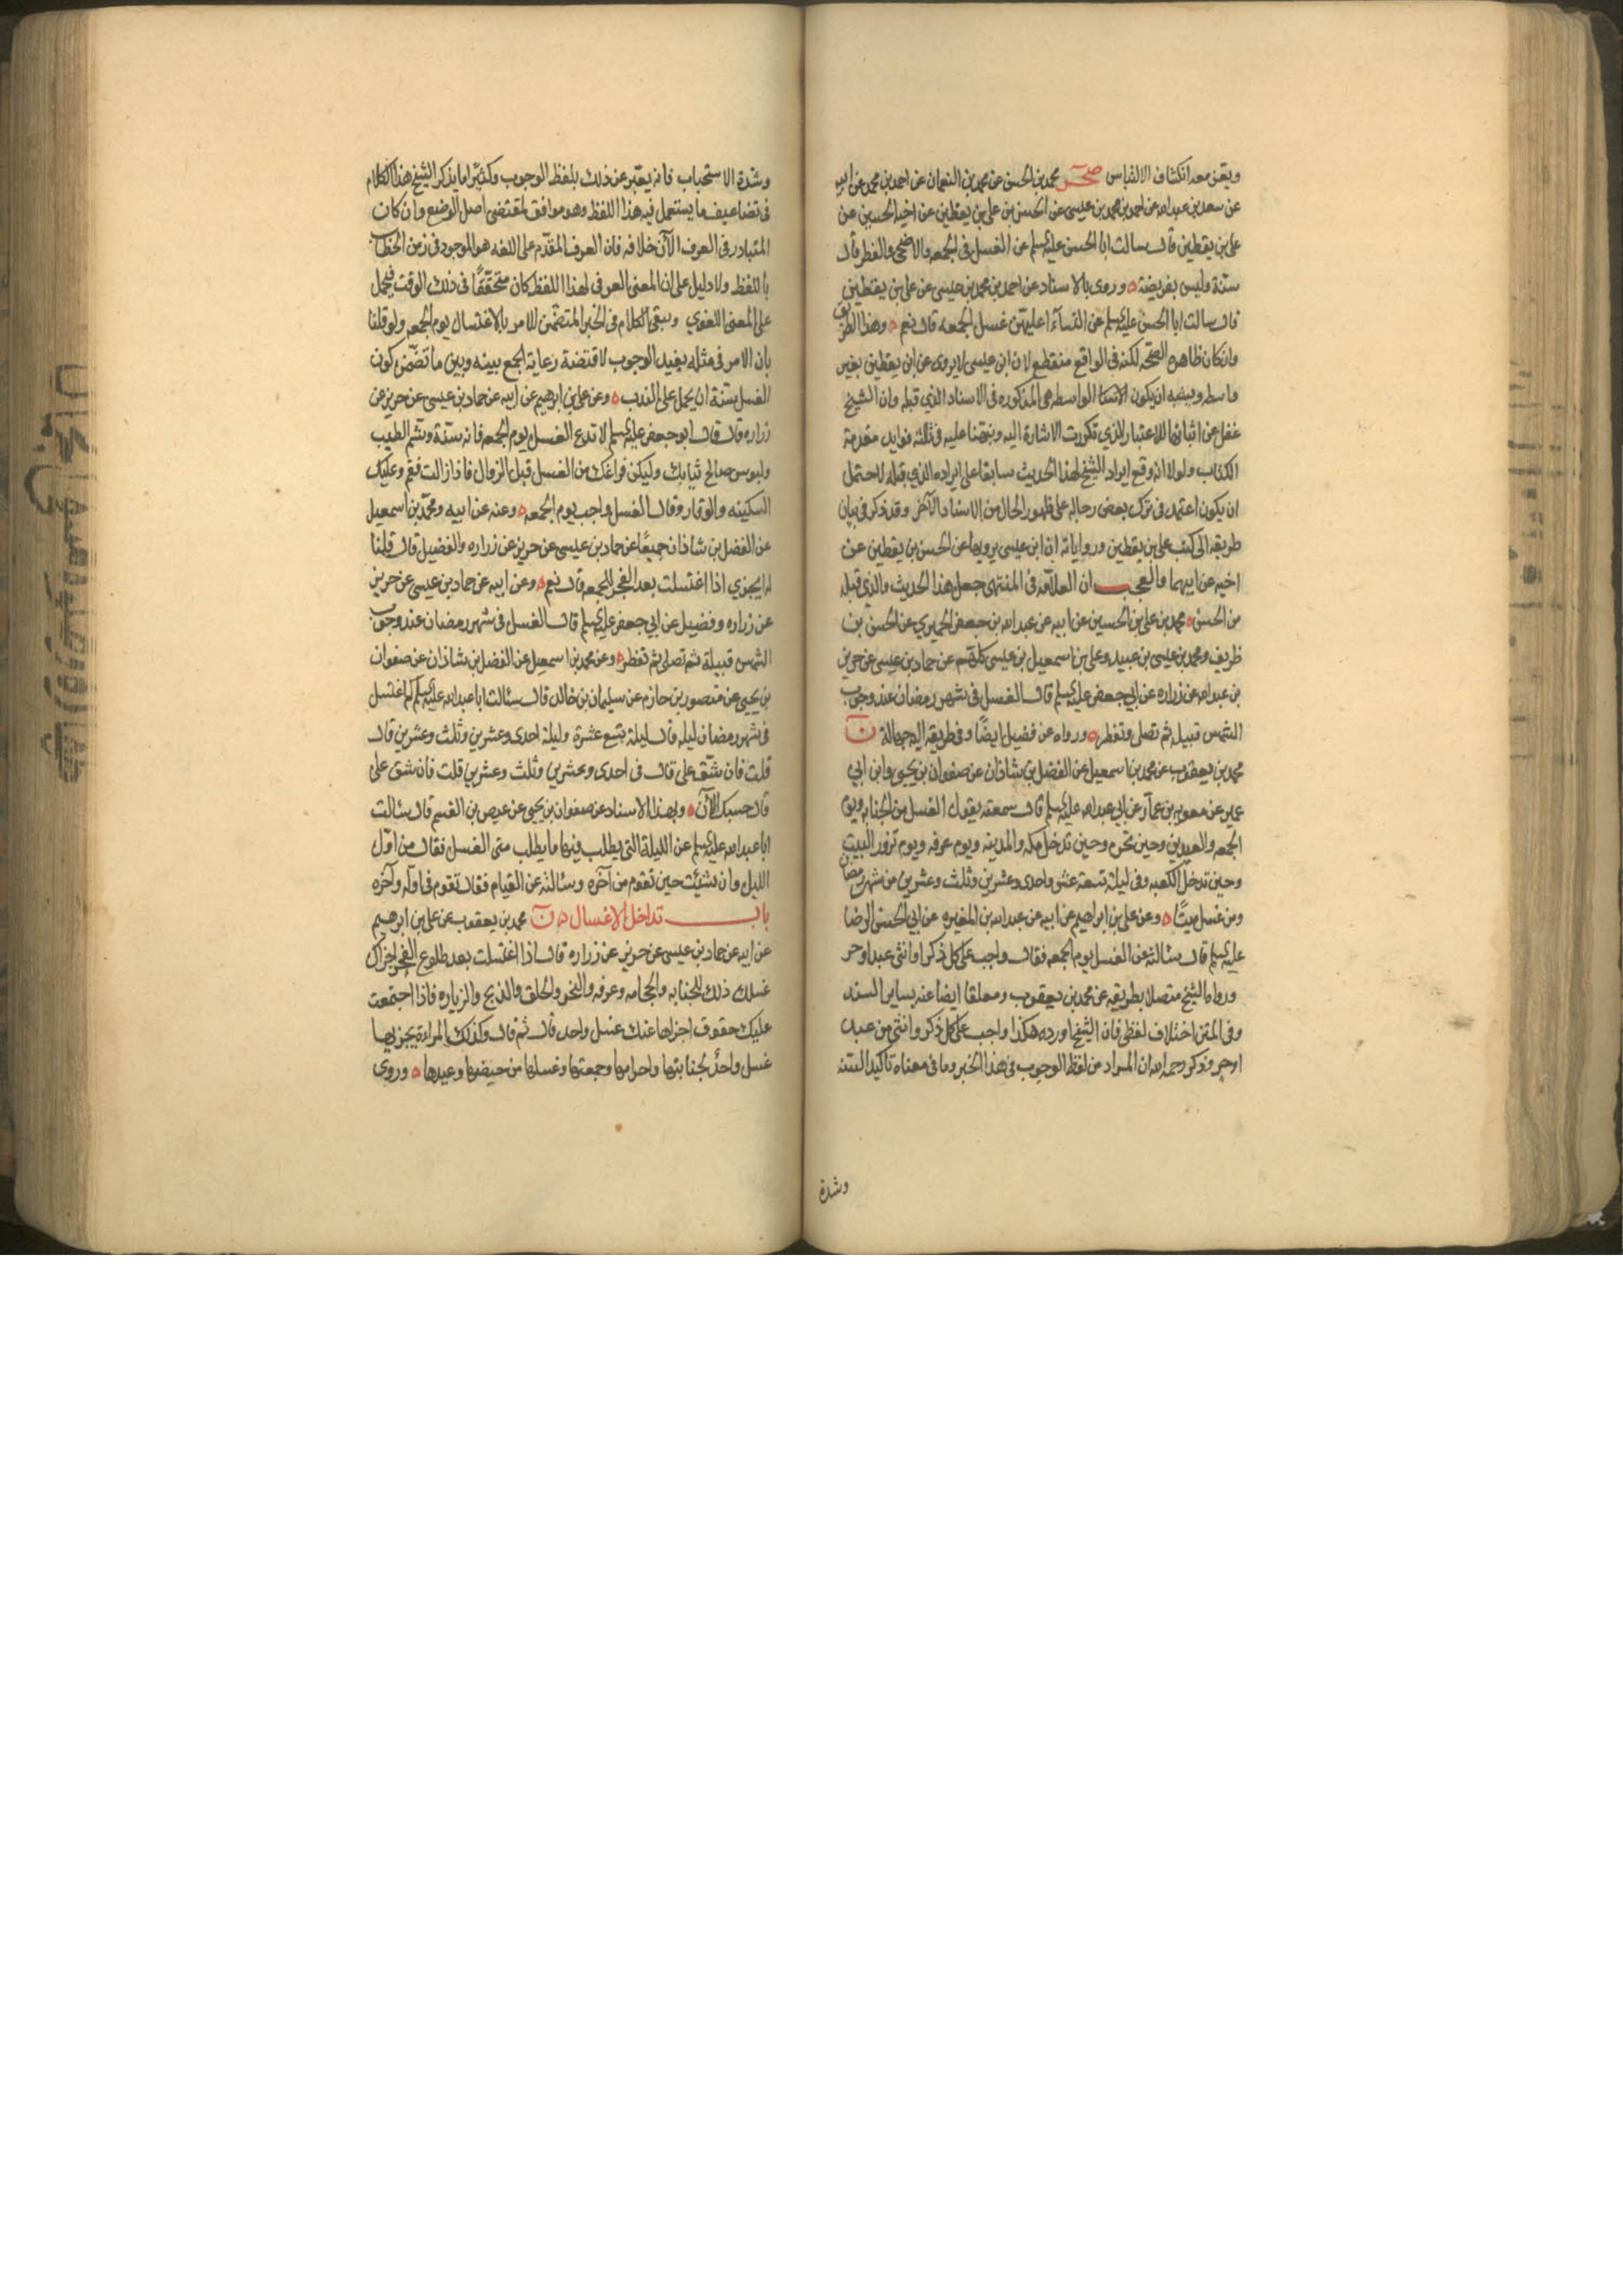 ويقرب معه انكشاف الالتباس صحر محمد بن الحسن عن محمد بن النعمان عن احمد بن محمد عن ابيه
عن سعد بن عبد الله عن احمد بن محمد بن عيسى عن الحسن بن علي بن يقطين عن اخيه الحسين عن
علي بن يقطين قال سالت ابا الحسن عليه السلم عن الغسل في الجمعه والاضحى والفطر قال
سنة وليس بفريضة وروى بالاسناد عن احمد بن محمد بن عيسى عن علي بن يقطين
قال سالت ابا الحسن عليه السلم عن النسآء اعليهن غسل الجمعه قال نعم وهذا الطريق
وان كان ظاهره الصحه لكنه في الواقع منقطع لان ابن عيسى لا يروى عن ابن يقطين بغير
واسطه ويشبه ان يكون الواسطه هي المذكوره في الاسناد الذي قبله وان الشيخ
غفل عن اثباتها للاعتبار الذي تكررت الاشارة اليه ونبهنا عليه في ثالثه فوايد مقدمة
الكتاب ولولا انه وقع ايراد الشيخ لهذا الحديث سابقا على ايراده الذي قبله لاحتمل
ان يكون اعتمد في ترك بعض رجاله على ظهور الحال من الاسناد الآخر وقد ذكر في بيان
طريقه الى كتب علي بن يقطين ورواياته ان ابن عيسى يرويها عن الحسن بن يقطين عن
اخيه عن ابيهما والعجب ان العلامه في المنتهى جعل هذا الحديث والذي قبله
من الحسن محمد بن علي بن الحسين عن ابيه عن عبد الله بن جعفر الحميري عن الحسن بن
ظريف ومحمد بن عيسى بن عبيد وعلي بن اسمعيل بن عيسى كلهم عن حماد بن عيسى عن حريز
بن عبد الله عن زراره عن ابي جعفر عليه السلم قال الغسل في شهر رمضان عند وجوب
الشمس قبيله ثم تصلى وتفطر ورواه عن فضيل ايضًا وفي طريقه اليه جهالة ن
محمد بن يعقوب عن محمد بن اسمعيل عن الفضل بن شاذان عن صفوان بن يحيى وابن ابي
عمير عن معويه بن عمار عن ابي عبد الله عليه السلم قال سمعته يقول الغسل من الجنابه ويوم
الجمعه والعيدين وحين تحرم وحين تدخل مكه والمدينه ويوم عرفه ويوم تزور البيت
وحين تدخل الكعبه وفي ليلة تسعة عشر واحدى وعشرين وثلث وعشرين من شهر رمضان
ومن غسل ميتًا وعن علي بن ابراهيم عن ابيه عن عبد الله بن المغيره عن ابي الحسن الرضا
عليه السلم قال سئالته عن الغسل يوم الجمعه فقال واجب على كل ذكر او انثى عبد او حر
ورواه الشيخ متصلا بطريقه عن محمد بن يعقوب ومعلقا ايضا عنه بساير السند
وفي المتن اختلاف لفظي فان الشيخ اورده هكذا واجب على كل ذكر وانثى من عبد
او حر وذكر رحمه الله ان المراد من لفظ الوجوب في هذا الخبر وما في معناه تاكيد السنه
وشدة
وشدة الاستحباب فانه يعبر عن ذلك بلفظ الوجوب وكثيرًا ما يذكر الشيخ هذا الكلام
في تضاعيف ما يستعمل فيه هذا اللفظ وهو موافق لمقتضى اصل الوضع وان كان
المتبادر في العرف الآن خلافه فان العرف المقدم على اللغه هو الموجود في زمن الخطاب
باللفظ ولا دليل على ان المعنى العرفي لهذا اللفظ كان متحققًا في ذلك الوقت فيحمل
على المعنى اللغوي ويبقى الكلام في الخبر المتضمن للامر بالاغتسال يوم الجمعه ولو قلنا
بان الامر في مثله يفيد الوجوب لاقتضته رعاية الجمع بينه وبين ما تضمن كون
الغسل سنة ان يحمل على الندب وعن علي بن ابرهيم عن ابيه عن حماد بن عيسى عن حريز عن
زراره قال قال ابو جعفر عليه السلم لا تدع الغسل يوم الجمعه فانه سنة وشم الطيب
ولبوس صالح ثيابك وليكن فراغك من الغسل قبل الزوال فاذا زالت فقم وعليك
السكينه والوقار وقال الغسل واجب يوم الجمعه وعنه عن ابيه ومحمد بن اسمعيل
عن الفضل بن شاذان جميعًا عن حماد بن عيسى عن حريز عن زراره والفضيل قال قلنا
له ايجزي اذا اغتسلت بعد الفجر للجمعه قال نعم وعن ابيه عن حماد بن عيسى عن حريز
عن زراره وفضيل عن ابي جعفر عليه السلم قال الغسل في شهر رمضان عند وجوب
الشمس قبيلة ثم تصلى ثم تفطر وعن محمد بن اسمعيل عن الفضل بن شاذان عن صفوان
بن يحيى عن منصور بن حازم عن سليمان بن خالد قال سئالت ابا عبد الله عليه السلم كم اغتسل
في شهر رمضان ليله قال ليلة تسع عشرة وليلة احدى وعشرين وثلث وعشرين قال
قلت فان شق على قال في احدى وعشرين وثلث وعشرين قلت فان شق على
قال حسبك الآن وبهذا الاسناد عن صفوان بن يحيى عن عيص بن القسم قال سئالت
ابا عبد الله عليه السلم عن الليلة التي يطلب فيها ما يطلب متى الغسل فقال من اول
الليل وان شئت حين تقوم من آخره وسئالته عن القيام فقال تقوم في اوله وآخره
باب تداخل الاغسال ن محمد بن يعقوب عن علي بن ابرهيم
عن ابيه عن حماد بن عيسى عن حريز عن زراره قال اذا اغتسلت بعد طلوع الفجر اجزاك
غسلك ذلك للجنابه والحجامه وعرفه والنحر والحلق والذبح والزياره فاذا اجتمعت
عليك حقوق اجزاها عنك غسل واحد قال ثم قال وكذلك المراءة يجزيها
غسل واحد لجنابتها واحرامها وجمعتها وغسلها من حيضها وعيدها وروى